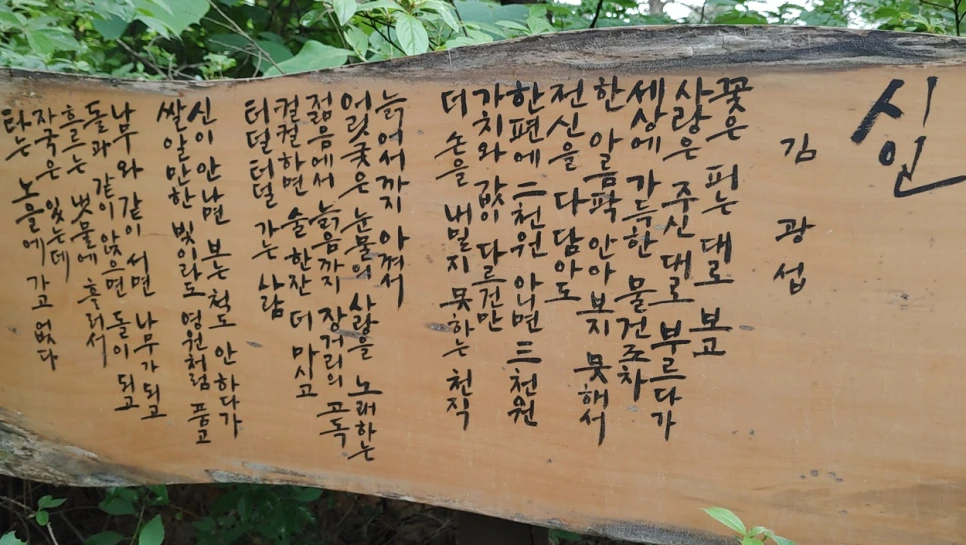 시인
김 광 섭
꽃은 피는 대로 보고
사랑은 주신 대로 부르다가
세상에 가득한 물건조차
한 아름팍 안아 보지 못해서
전신을 다 담아도
한편에 二천원 아니면 三천원
가치와 값이 다르건만
더 손을 내밀지 못하는 천직
늙어서까지 아껴서
어릿궂은 눈물의 사랑을 노래하는
젊음에서 늙음까지 장거리의 고독
컬컬하면 술 한잔 더 마시고
터덜터덜 가는 사람
신이 안 나면 보는 척도 안 하다가
쌀알만한 빛이라도 영원처럼 품고
나무와 같이 서면 나무가 되고
돌과 같이 앉으면 돌이 되고
흐르는 냇물에 흘러서
자국은 있는데
타는 노을에 가고 없다